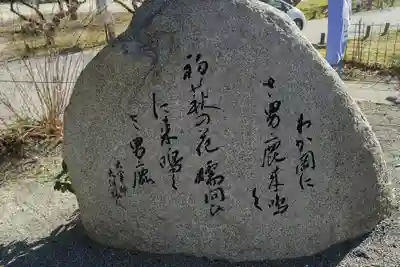 わか岡に
さ男鹿来鳴く
初萩の花嬬問ひ
に来鳴く
さ男鹿